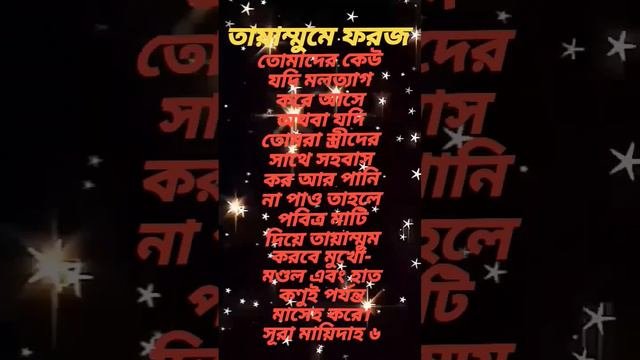 তায়াম্মুমে ফরজ
তোমাদের কেউ
যদি মলত্যাগ
করে আসে
অথবা যদি
তোমরা স্ত্রীদের
সাথে সহবাস
কর আর পানি
না পাও তাহলে
পবিত্র মাটি
দিয়ে তায়াম্মুম
করবে মুখো-
মণ্ডল এবং হাত
কণুই পর্যন্ত
মাসেহ করো।
সূরা মায়িদাহ ৬